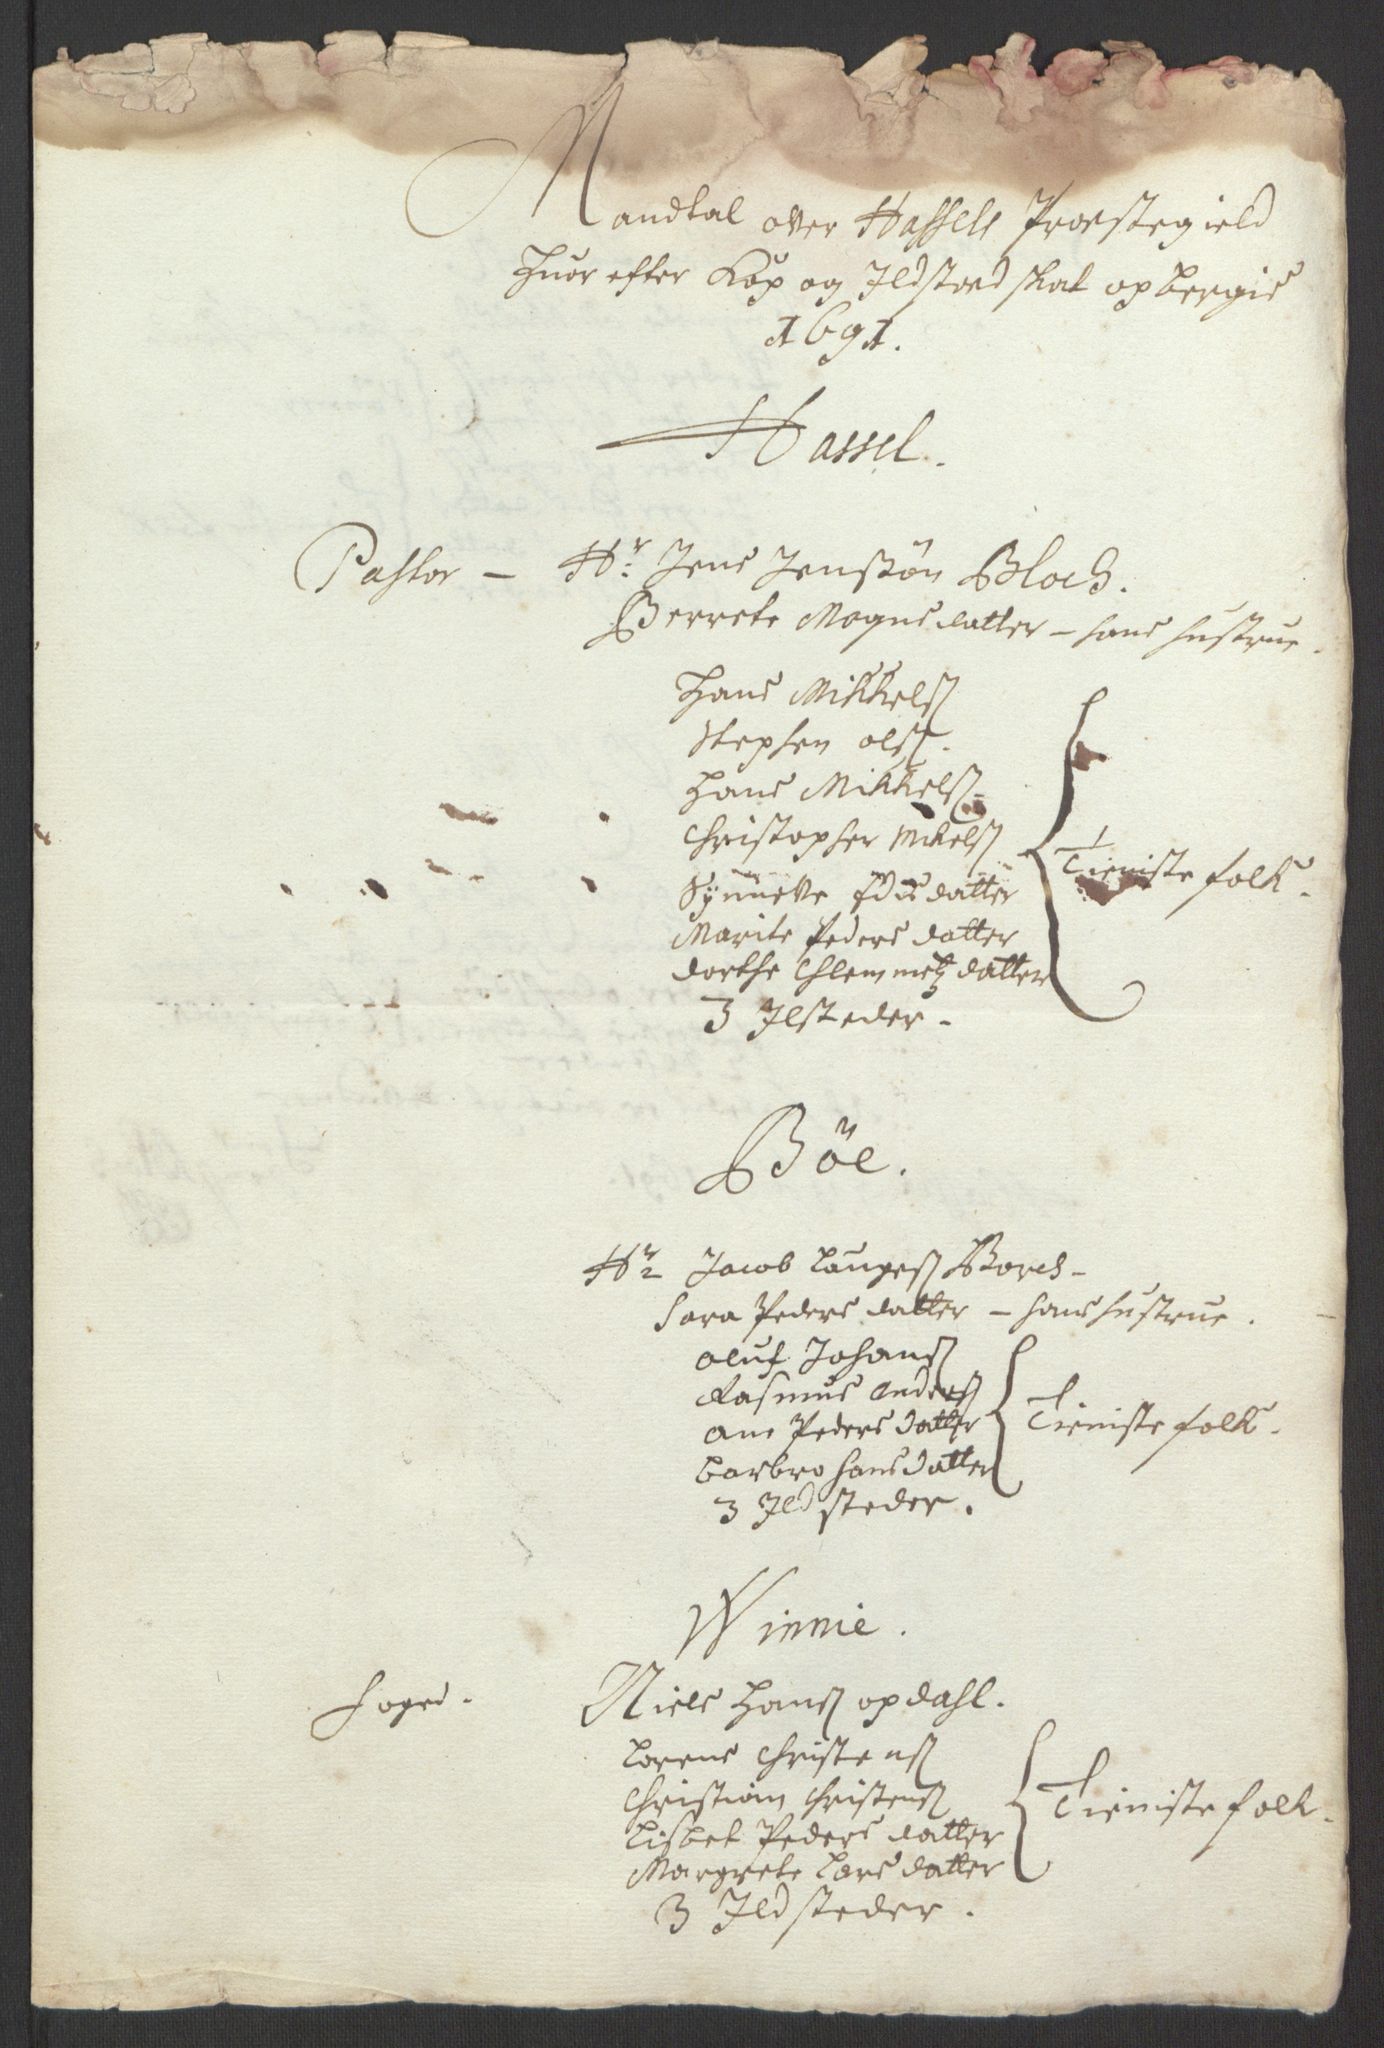 Mandtal over Hassels Præstegield
huor efter Kop og Ildstæd skat opbergis
1691.
Hassel.
Pastor - Hr: Jens Jensßön Bloch.
Berrete Mognsdatter - hans hustrue.
Hans Mikkelß
Stephen olß.
Hans Mikkelß
Christopher Mikelß
Synneve datter
Marite Peders datter
dorthe Chlemmetz datter
Tieniste folk.
3 Ilsteder.
Böe.
Hr Jacob Laugeß Borch -
Sara Peders datter - hans hustrue.
oluf Johanß
Rasmus Anderß
ane Peders datter
barbro hansdatter
Tieniste folk.
3 Ildsteder.
Winnie.
foged. Niels Hanß opdahl.
Lorens Christenß
Christian Christenß
Lisbet Peders datter
Margrete Lars datter
Tieniste folk.
3 Ildsteder.